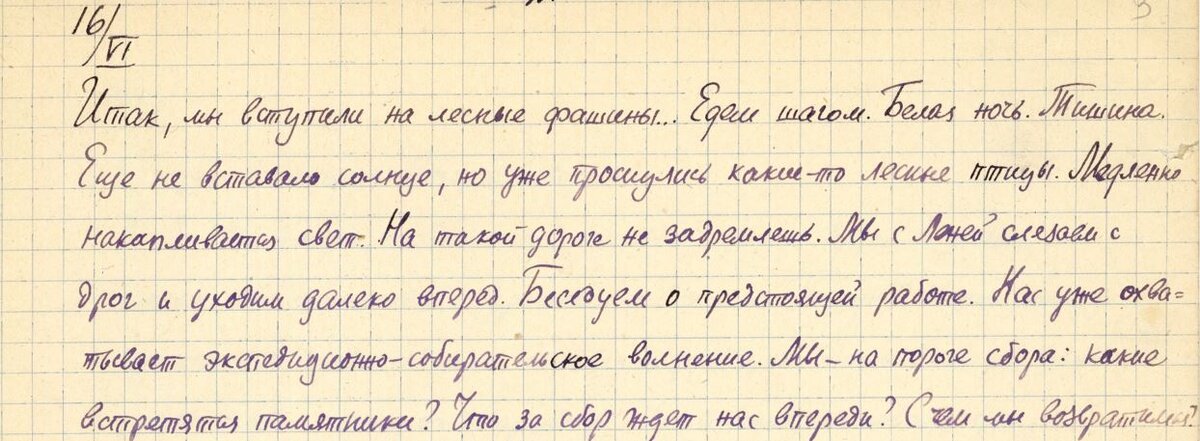 16/VI
3
Итак, мы вступили на лесные фашины... Едем шагом. Белая ночь. Тишина.
Еще не вставало солнце, но уже проснулись какие-то лесные птицы. Медленно
накапливается свет. На такой дороге не задремлешь. Мы с Лёней слезаем с
дрог и уходим далеко вперед. Беседуем о предстоящей работе. Нас уже охва=
тывает экспедиционно-собирательское волнение. Мы – на пороге сбора: какие
встретятся памятники? Что за сбор ждет нас впереди? С чем мы возвратимся?